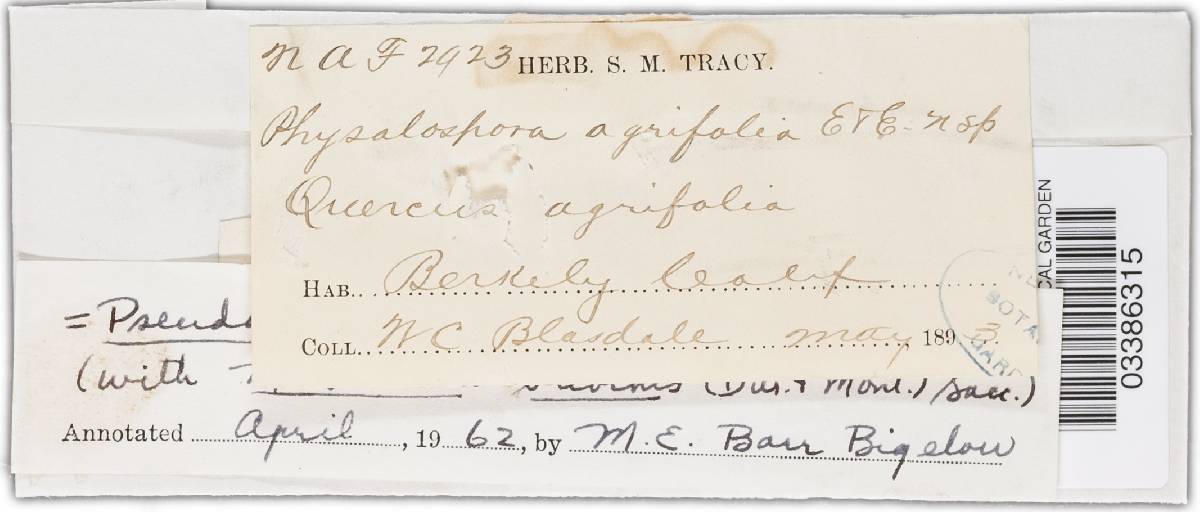 N A F 2923 HERB. S. M. TRACY.
Physalospora agrifolia E&E. n sp
Quercus agrifolia
HAB. Berkely Calif
COLL. W C Blasdale May 1893
= Pseudo
(with (Dur. & Mont.) Sacc.)
Annotated April, 1962, by M. E. Barr Bigelow
CAL GARDEN
03386315
NE
BOTA
GARD